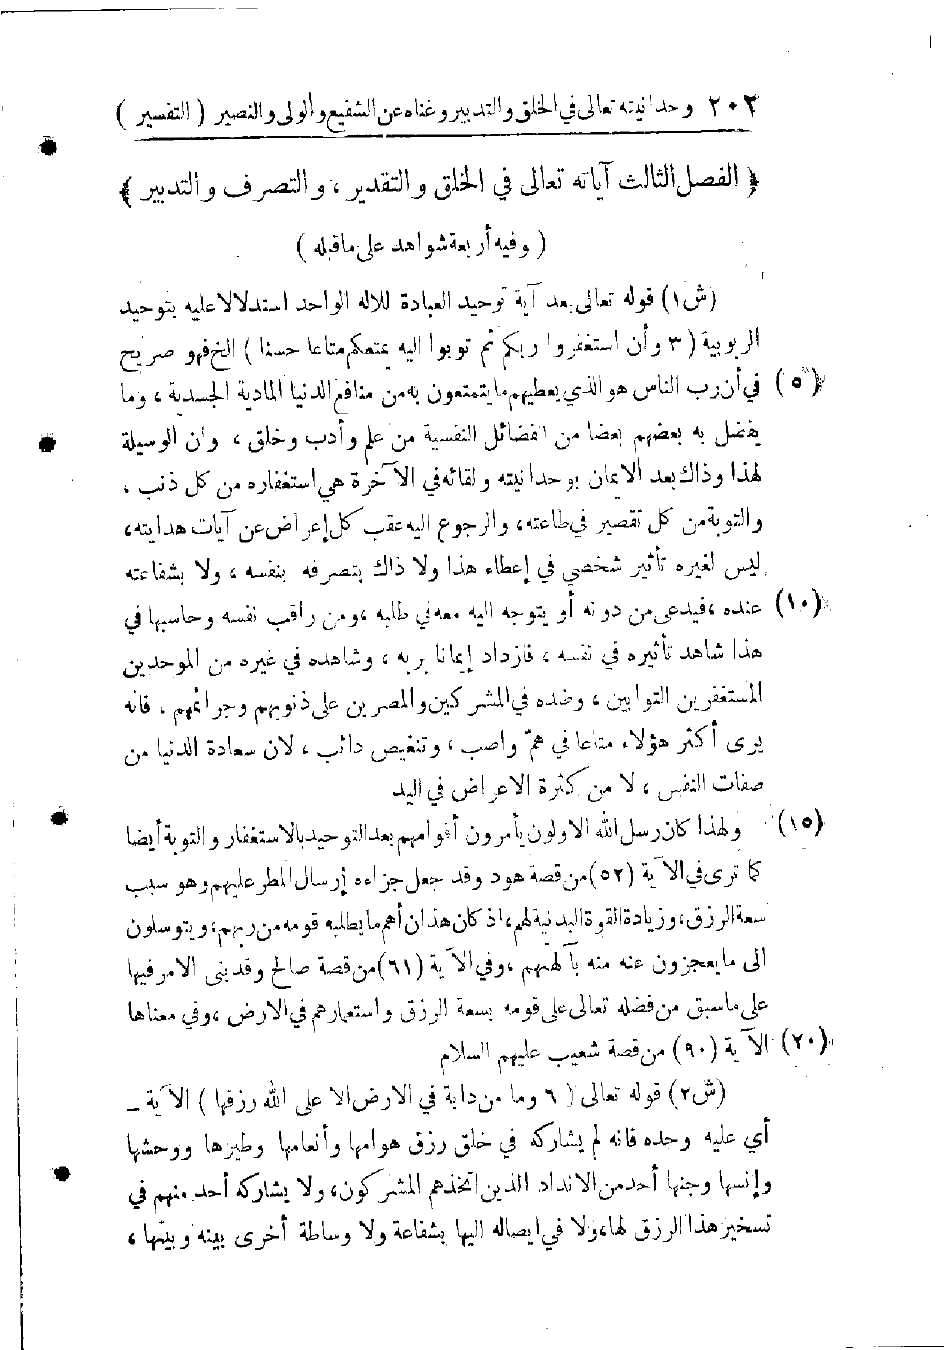 ٢٠٢ وحدانيته تعالى في الخلق والتدبير وغناه عن الشفيع والولى والنصير ( التفسير )
﴿ الفصل الثالث آياته تعالى في الخلق والتقدير ، والتصرف والتدبير ﴾
( وفيه أربعة شواهد على ما قبله )
(ش١) قوله تعالى بعد آية توحيد العبادة للاله الواحد استدلالا عليه بتوحيد
الربوبية ( ٣ وأن استغفروا ربكم ثم توبوا اليه يمتعكم متاعا حسنا ) الخ فهو صريح
(٥) في أن رب الناس هو الذي يعطيهم ما يتمتعون به من منافع الدنيا المادية الجسدية ، وما
يفضل به بعضهم بعضا من الفضائل النفسية من علم وأدب وخلق ، وان الوسيلة
لهذا وذاك بعد الايمان بوحدانيته ولقائه في الآخرة هي استغفاره من كل ذنب ،
والتوبة من كل تقصير في طاعته ، والرجوع اليه عقب كل إعراض عن آيات هدايته ،
ليس لغيره تأثير شخصي في إعطاء هذا ولا ذاك بتصرفه بنفسه ، ولا بشفاعته
(١٠) عنده ، فيدعى من دونه أو يتوجه اليه معه في طلبه ، ومن راقب نفسه وحاسبها في
هذا شاهد تأثيره في نفسه ، فازداد إيمانا بربه ، وشاهده في غيره من الموحدين
المستغفرين التوابين ، وضده في المشركين والمصرين على ذنوبهم وجرائمهم ، فانه
يرى أكثر هؤلاء متاعا في همّ واصب ، وتنغيص دائب ، لان سعادة الدنيا من
صفات النفس ، لا من كثرة الاعراض في اليد
(١٥) ولهذا كان رسل الله الاولون يأمرون أقوامهم بعد التوحيد بالاستغفار والتوبة أيضا
كما ترى في الآية (٥٢) من قصة هود وقد جعل جزاءه إرسال المطر عليهم وهو سبب
سعة الرزق ، وزيادة القوة البدنية لهم ، اذ كان هذان أهم ما يطلبه قومه من ربهم ، ويتوسلون
الى ما يعجزون عنه منه بآلهتهم ، وفي الآية (٦١) من قصة صالح وقد بنى الامر فيها
على ما سبق من فضله تعالى على قومه بسعة الرزق واستعمارهم في الارض ، وفي معناها
(٢٠) الآية (٩٠) من قصة شعيب عليهم السلام
(ش٢) قوله تعالى ( ٦ وما من دابة في الارض الا على الله رزقها ) الآية ــ
أي عليه وحده فانه لم يشاركه في خلق رزق هوامها وأنعامها وطيرها ووحشها
وإنسها وجنها أحد من الانداد الذين اتخذهم المشركون ، ولا يشاركه أحد منهم في
تسخير هذا الرزق لها ، ولا في ايصاله اليها بشفاعة ولا وساطة أخرى بينه وبينها ،